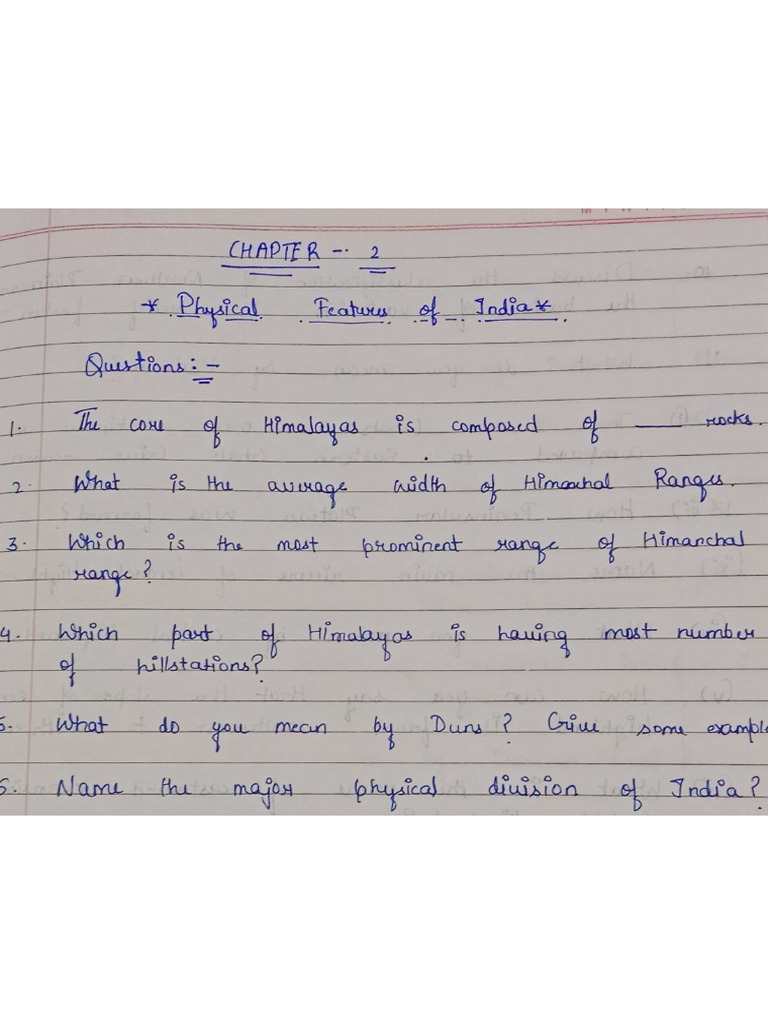 CHAPTER - 2
* Physical Features of India *
Questions :-
1. The core of Himalayas is composed of ____ rocks.
2. What is the average width of Himachal Ranges.
3. Which is the most prominent range of Himanchal
range?
4. Which part of Himalayas is having most number
of hillstations?
5. What do you mean by Duns? Give some example
6. Name the major physical division of India?